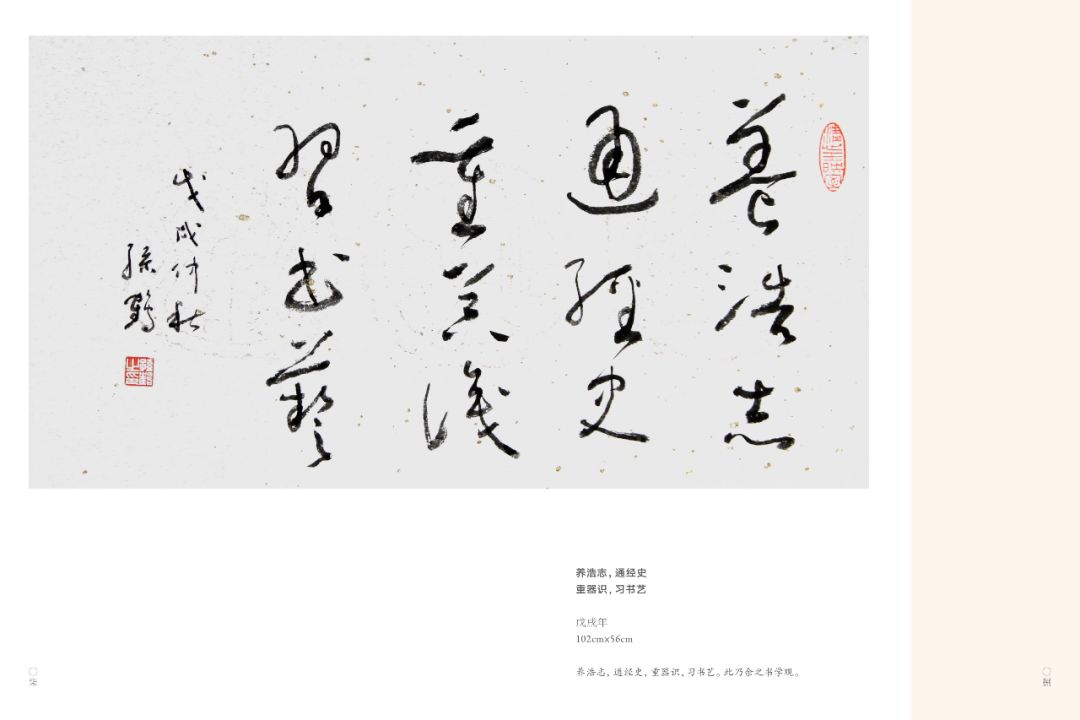 養浩志
通經史
重器識
習書藝
戊戌仲秋
孫鶴
养浩志，通经史
重器识，习书艺
戊戌年
102cm×56cm
养浩志，通经史，重器识，习书艺。此乃余之书学观。
〇柒
〇捌